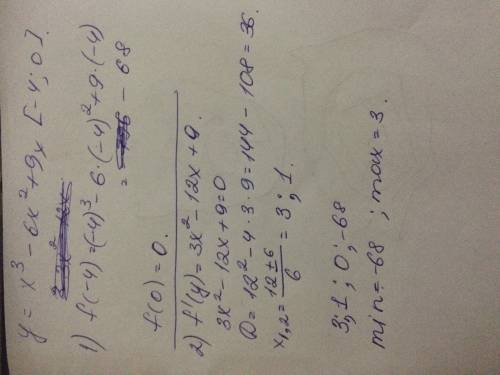 y = x³ - 6x² + 9x [-4; 0].
1) f(-4) = (-4)³ - 6·(-4)² + 9·(-4)
= - 68
f(0) = 0.
2) f'(y) = 3x² - 12x + 9.
3x² - 12x + 9 = 0
D = 12² - 4·3·9 = 144 - 108 = 36.
x₁,₂ = (12 ± 6)/6 = 3; 1.
3; 1; 0; -68
min = -68 ; max = 3.